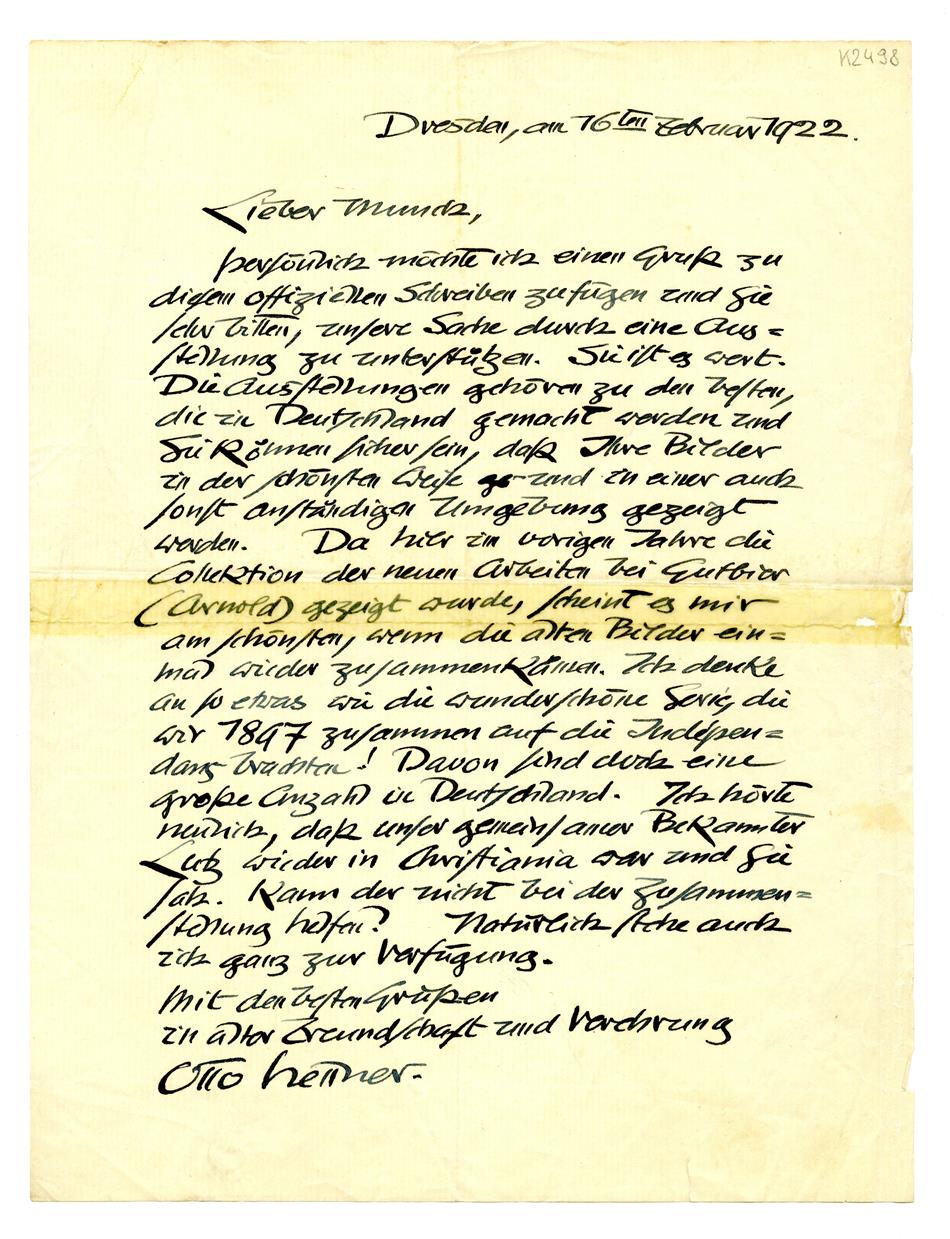 K2498
Dresden, am 16ten Februar 1922.
Lieber Munch,
persönlich möchte ich einen Gruß zu
diesem offiziellen Schreiben zufügen und Sie
sehr bitten, unsere Sache durch eine Aus=
stellung zu unterstützen. Sie ist es wert.
Die Ausstellungen gehören zu den besten,
die in Deutschland gemacht werden und
Sie können sicher sein, daß Ihre Bilder
in der schönsten Weise und in einer auch
sonst anständigen Umgebung gezeigt
werden. Da hier im vorigen Jahre die
Collektion der neuen Arbeiten bei Gutbier
(Arnold) gezeigt wurde, scheint es mir
am schönsten, wenn die alten Bilder ein=
mal wieder zusammenkämen. Ich denke
an so etwas wie die wunderschöne Serie, die
wir 1897 zusammen auf die Indépen=
dans brachten! Davon sind doch eine
große Anzahl in Deutschland. Ich hörte
neulich, daß unser gemeinsamer Bekannter
Lutz wieder in Christiania war und Sie
sah. Kann der nicht bei der Zusammen=
stellung helfen? Natürlich stehe auch
ich ganz zur Verfügung.
Mit den besten Grüßen
in alter Freundschaft und Verehrung
Otto Hettner.